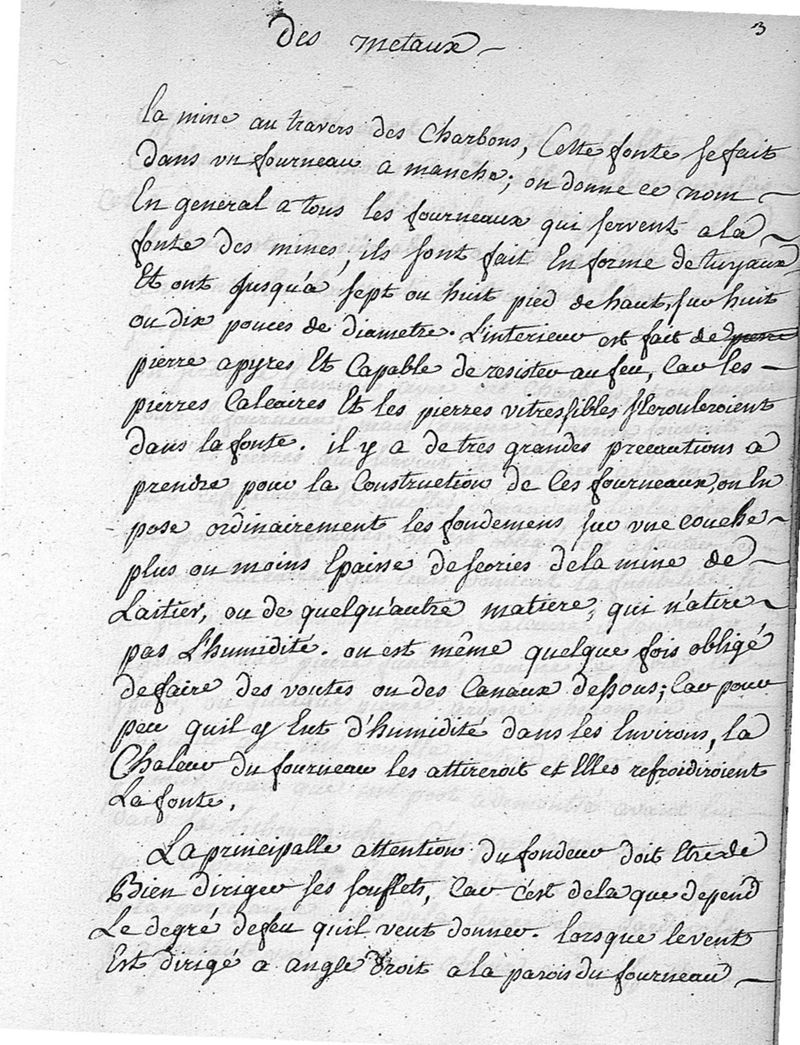 3
Des metaux
la mine au travers des Charbons, Cette fonte se fait
dans vn fourneau a manche; on donne ce nom
En general a tous les fourneaux qui servent a la
fonte des mines, ils sont fait En forme de tuyaux
Et ont Jusqu'a sept ou huit pied de haut, sur huit
ou dix pouces de diametre. L'interieur est fait de
pierre apyres Et Capable de resister au feu, Car les
pierres Calcaires Et les pierres vitresfibles s'ecrouleroient
dans la fonte. il y a de tres grandes precautions a
prendre pour la Construction de Ces fourneaux, on En
pose ordinairement les fondemens sur vne couche
plus ou moins Epaisse de scories de la mine de
Laitier, ou de quelqu'autre matiere, qui n'atire
pas L'humidité. on est même quelque fois obligé
de faire des voutes ou des Canaux dessous; Car pour
peu quil y Eut d'humidité dans les Environs, la
Chaleur du fourneau les attireroit et Elles refroidiroient
La fonte.
La principalle attention du fondeur doit Etre de
Bien diriger ses souflets, Car c'est de la que depend
Le degré de feu quil veut donner. lorsque le vent
Est dirigé a angle droit a la parois du fourneau